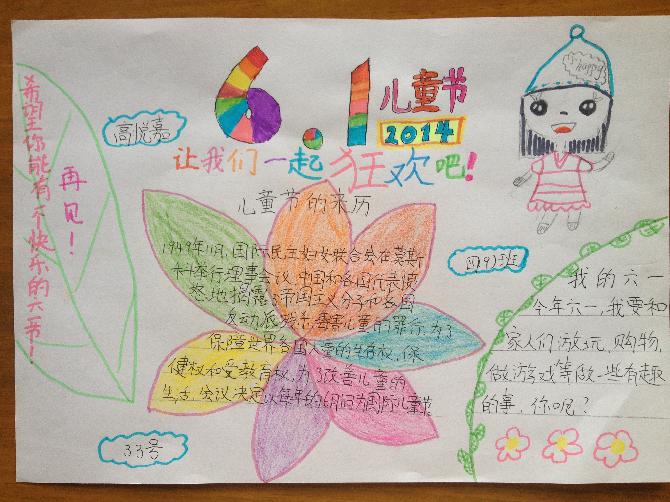 6.1
儿童节
2014
让我们一起狂欢吧!
高悦嘉
希望你能有个快乐的六一节!
再见!
happy
儿童节的来历
1949年11月,国际民主妇女联合会在莫斯
科举行理事会议,中国和各国代表愤
怒地揭露了帝国主义分子和各国
反动派残杀、毒害儿童的罪行。为了
保障世界各国儿童的生存权、保
健权和受教育权,为了改善儿童的
生活,会议决定以每年的6月1日为国际儿童节
四(9)班
33号
我的六一
今年六一,我要和
家人们游玩,购物,
做游戏等做一些有趣
的事,你呢?